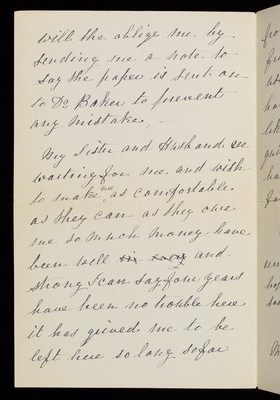 will the oblige me by
sending me a note to
say the paper is sent on
to Dr Baker to prevent
any mistake. —
My Sister and Husband are
waiting for me and wish
to make me as comfortable
as they can as they owe
me so much money have
been well and
strong I can say four years
have been no trouble here
it has grieved me to be
left here so long so far